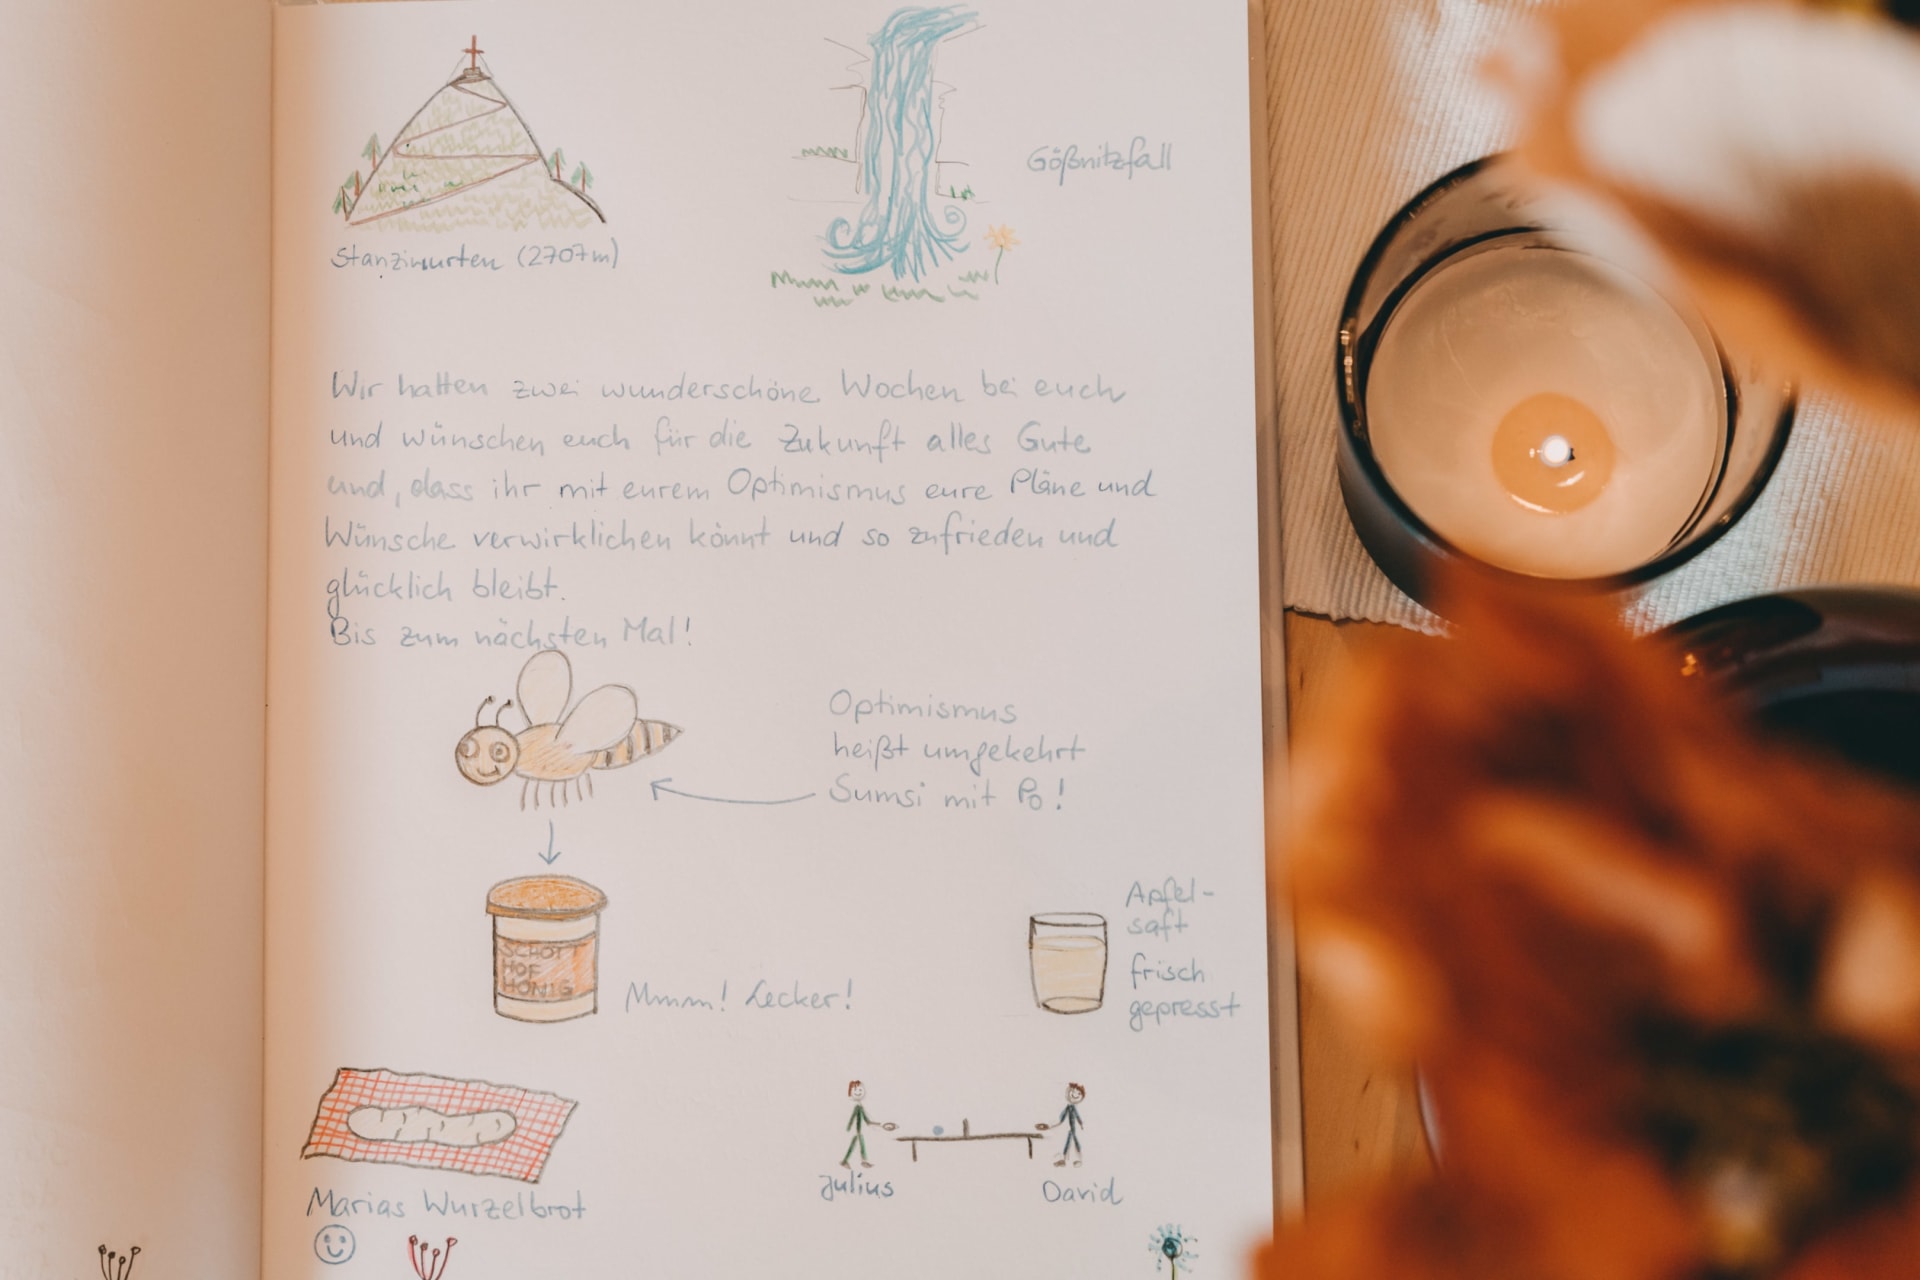 Stanziwurten (2707m)
Gößnitzfall
Wir hatten zwei wunderschöne Wochen bei euch
und wünschen euch für die Zukunft alles Gute
und, dass ihr mit eurem Optimismus eure Pläne und
Wünsche verwirklichen könnt und so zufrieden und
glücklich bleibt.
Bis zum nächsten Mal!
Optimismus
heißt umgekehrt
Sumsi mit Po!
SCHOTT
HOF
HONIG
Mmm! Lecker!
Apfel-
saft
frisch
gepresst
Marias Wurzelbrot
Julius
David